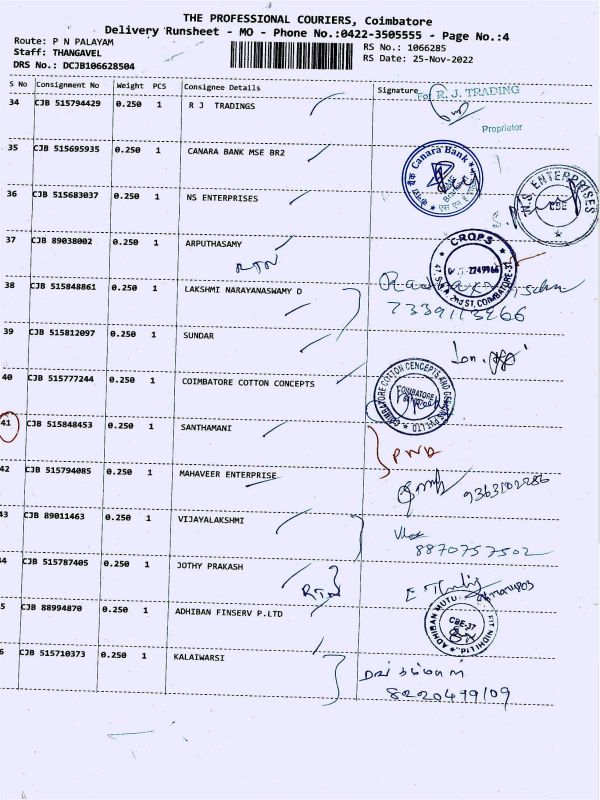 THE PROFESSIONAL COURIERS, Coimbatore
Delivery Runsheet - MO - Phone No.:0422-3505555 - Page No.:4
Route: P N PALAYAM
Staff: THANGAVEL
DRS No.: DCJB106628504
RS No.: 1066285
RS Date: 25-Nov-2022
S No Consignment No Weight PCS Consignee Details Signature
For R. J. TRADING
34 CJB 515794429 0.250 1 R J TRADINGS
Propriator
35 CJB 515695935 0.250 1 CANARA BANK MSE BR2
Canara Bank
36 CJB 515683037 0.250 1 NS ENTERPRISES
ENTERPRISES
CBE
37 CJB 89038002 0.250 1 ARPUTHASAMY
RTN
CROPS
2ND ST, COIMBATORE-37
38 CJB 515848861 0.250 1 LAKSHMI NARAYANASWAMY D
39 CJB 515812097 0.250 1 SUNDAR
40 CJB 515777244 0.250 1 COIMBATORE COTTON CONCEPTS
COIMBATORE COTTON CENCEPTS AND
COIMBATORE
41 CJB 515848453 0.250 1 SANTHAMANI
42 CJB 515794085 0.250 1 MAHAVEER ENTERPRISE
9363102286
43 CJB 89011463 0.250 1 VIJAYALAKSHMI
8870757502
44 CJB 515787405 0.250 1 JOTHY PRAKASH
RTN
5 CJB 88994870 0.250 1 ADHIBAN FINSERV P.LTD
ADHIBAN MUTU
FIT NIDHI Ltd.
CBE-37
6 CJB 515710373 0.250 1 KALAIWARSI
8220499109